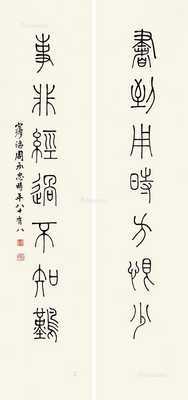 書到用時方恨少
事非經過不知難
周永忠時年八十有八